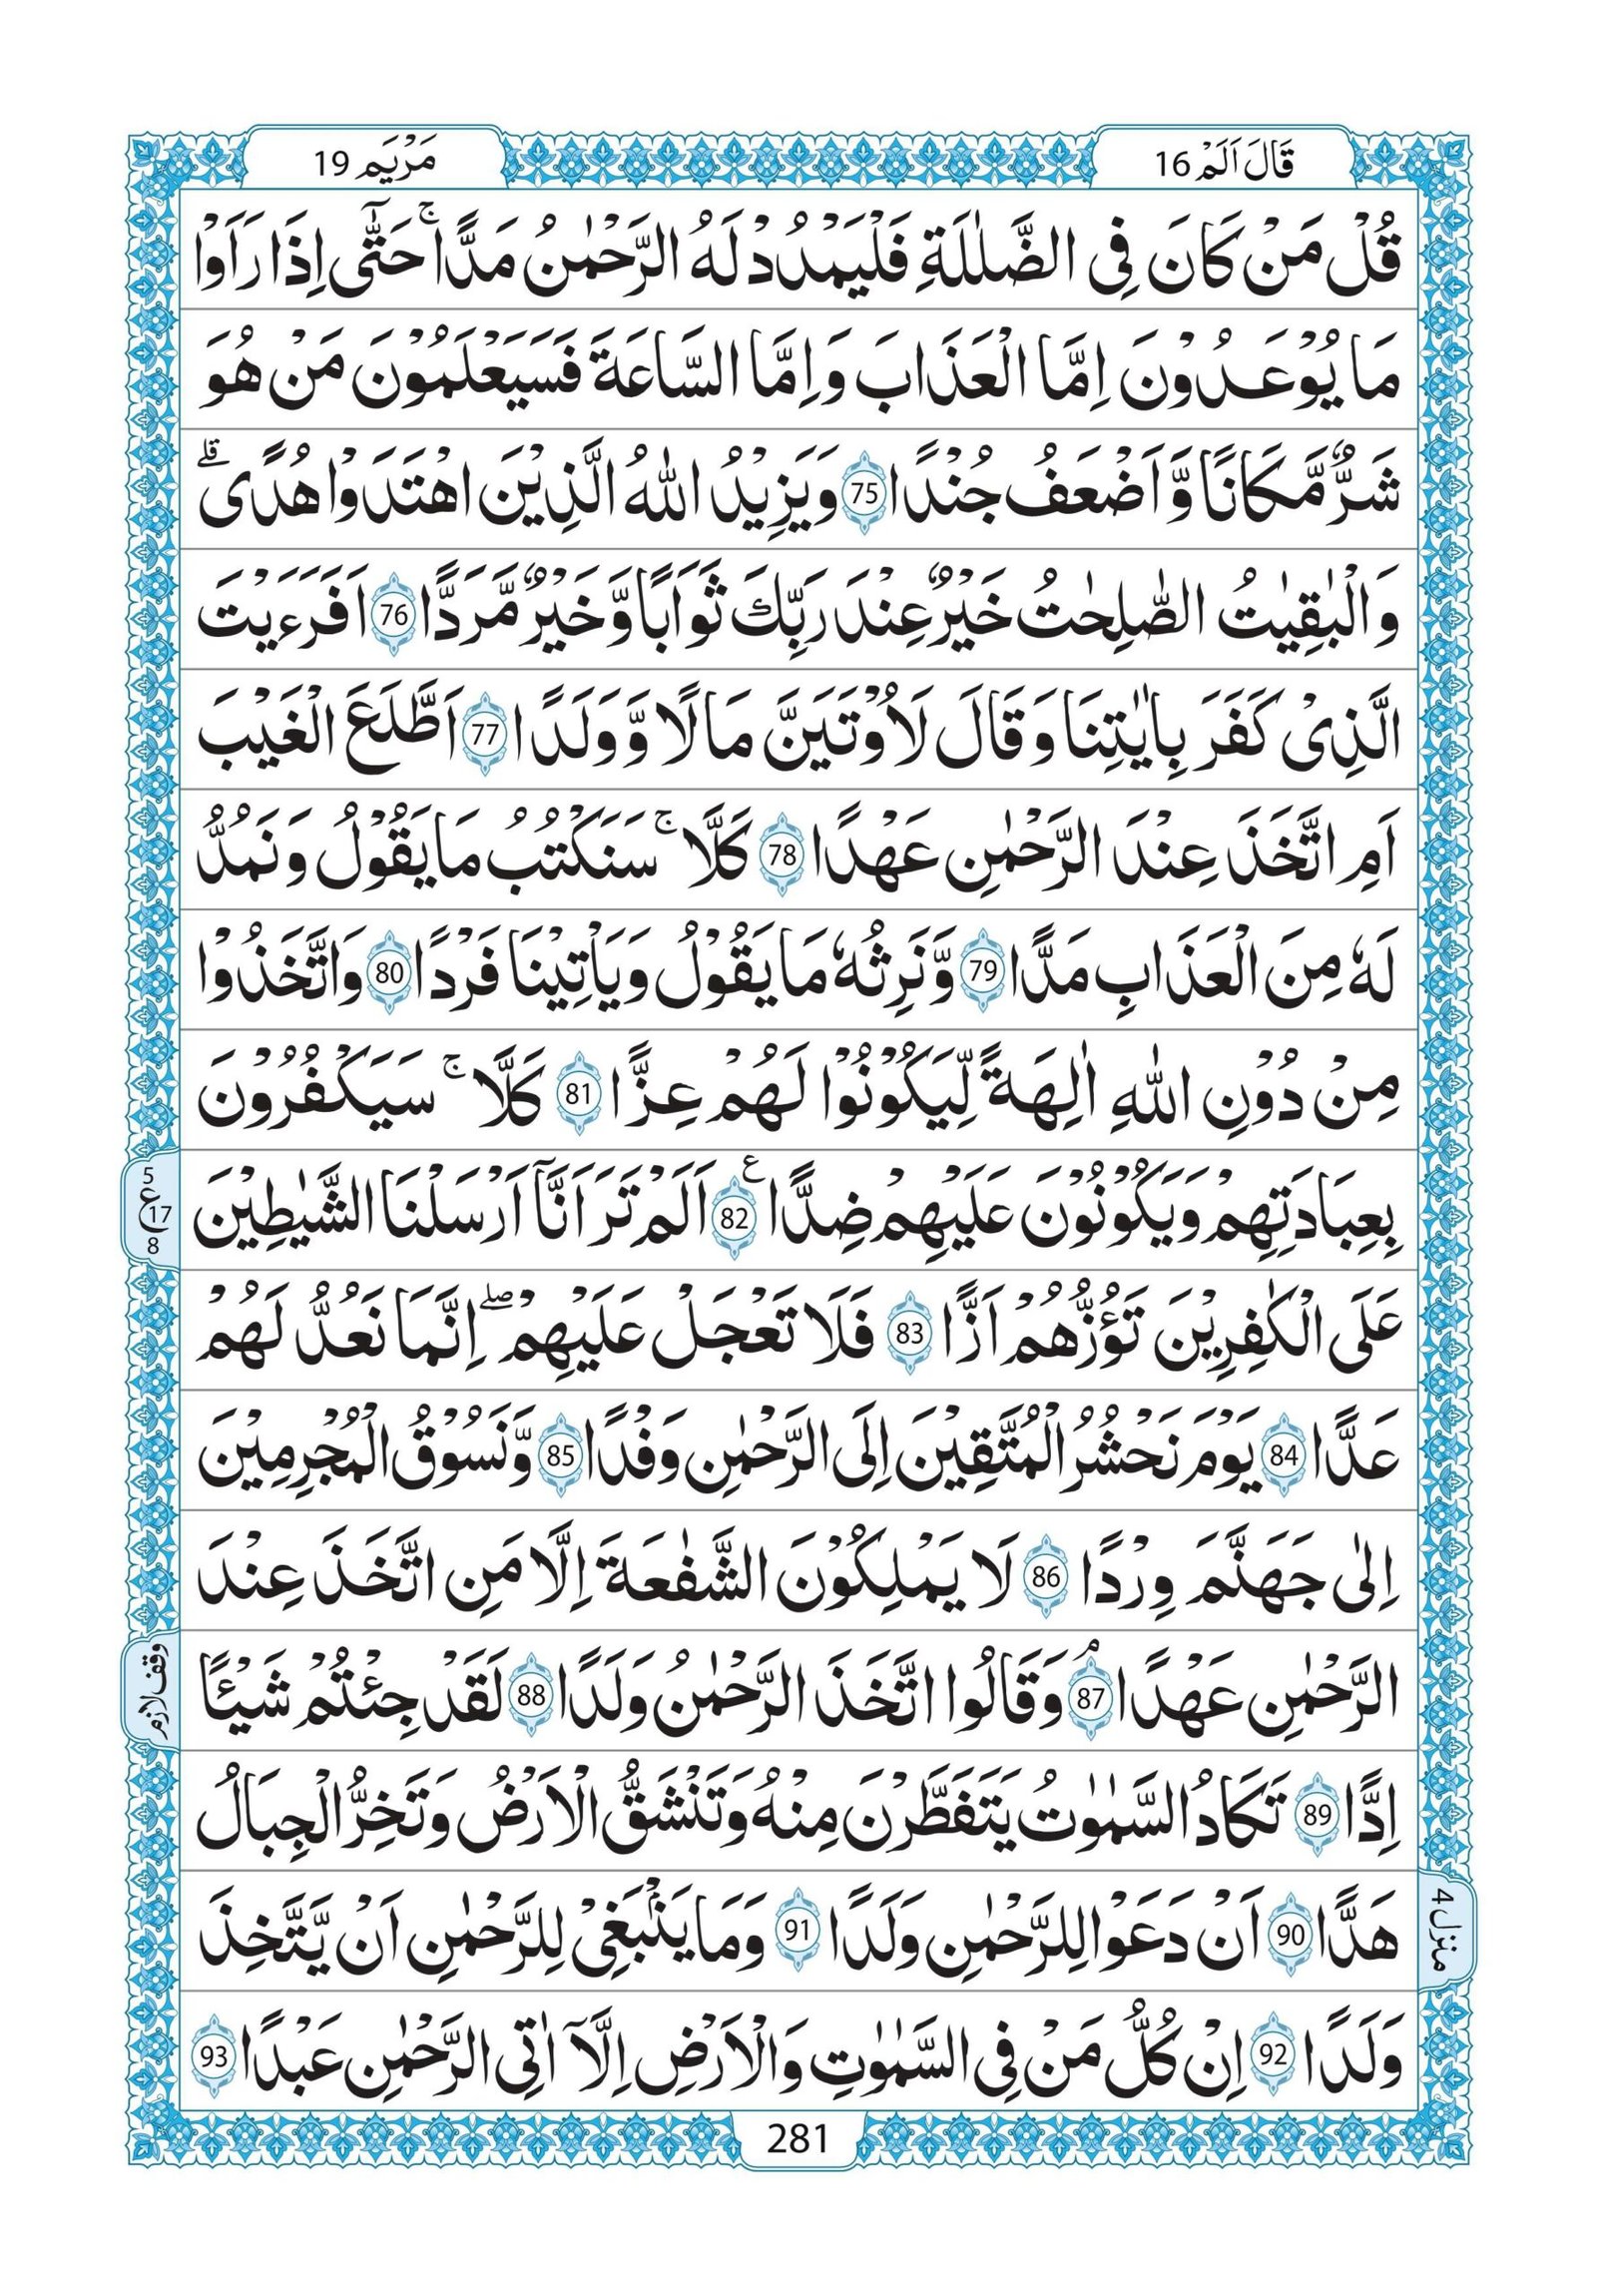 قَالَ اَلَمْ 16
مَرْيَم 19
قُلْ مَنْ كَانَ فِى الضَّلٰلَةِ فَلْيَمْدُدْ لَهُ الرَّحْمٰنُ مَدًّا ۚ حَتّٰٓى اِذَا رَاَوْا
مَا يُوْعَدُوْنَ اِمَّا الْعَذَابَ وَاِمَّا السَّاعَةَ فَسَيَعْلَمُوْنَ مَنْ هُوَ
شَرٌّ مَّكَانًا وَّاَضْعَفُ جُنْدًا 75 وَيَزِيْدُ اللّٰهُ الَّذِيْنَ اهْتَدَوْا هُدًى ۗ
وَالْبٰقِيٰتُ الصّٰلِحٰتُ خَيْرٌ عِنْدَ رَبِّكَ ثَوَابًا وَّخَيْرٌ مَّرَدًّا 76 اَفَرَءَيْتَ
الَّذِىْ كَفَرَ بِاٰيٰتِنَا وَقَالَ لَاُوْتَيَنَّ مَالًا وَّوَلَدًا 77 اَطَّلَعَ الْغَيْبَ
اَمِ اتَّخَذَ عِنْدَ الرَّحْمٰنِ عَهْدًا 78 كَلَّا ۚ سَنَكْتُبُ مَا يَقُوْلُ وَنَمُدُّ
لَهٗ مِنَ الْعَذَابِ مَدًّا 79 وَّنَرِثُهٗ مَا يَقُوْلُ وَيَاْتِيْنَا فَرْدًا 80 وَاتَّخَذُوْا
مِنْ دُوْنِ اللّٰهِ اٰلِهَةً لِّيَكُوْنُوْا لَهُمْ عِزًّا 81 كَلَّا ۚ سَيَكْفُرُوْنَ
بِعِبَادَتِهِمْ وَيَكُوْنُوْنَ عَلَيْهِمْ ضِدًّا 82 ع اَلَمْ تَرَ اَنَّآ اَرْسَلْنَا الشَّيٰطِيْنَ
5 ع 17 8
عَلَى الْكٰفِرِيْنَ تَؤُزُّهُمْ اَزًّا 83 فَلَا تَعْجَلْ عَلَيْهِمْ ۖ اِنَّمَا نَعُدُّ لَهُمْ
عَدًّا 84 يَوْمَ نَحْشُرُ الْمُتَّقِيْنَ اِلَى الرَّحْمٰنِ وَفْدًا 85 وَّنَسُوْقُ الْمُجْرِمِيْنَ
اِلٰى جَهَنَّمَ وِرْدًا 86 لَا يَمْلِكُوْنَ الشَّفٰعَةَ اِلَّا مَنِ اتَّخَذَ عِنْدَ
الرَّحْمٰنِ عَهْدًا 87 ۘ وَقَالُوا اتَّخَذَ الرَّحْمٰنُ وَلَدًا 88 لَقَدْ جِئْتُمْ شَيْـًٔا
وقف لازم
اِدًّا 89 تَكَادُ السَّمٰوٰتُ يَتَفَطَّرْنَ مِنْهُ وَتَنْشَقُّ الْاَرْضُ وَتَخِرُّ الْجِبَالُ
هَدًّا 90 اَنْ دَعَوْا لِلرَّحْمٰنِ وَلَدًا 91 وَمَا يَنْۢبَغِىْ لِلرَّحْمٰنِ اَنْ يَّتَّخِذَ
منزل 4
وَلَدًا 92 اِنْ كُلُّ مَنْ فِى السَّمٰوٰتِ وَالْاَرْضِ اِلَّآ اٰتِى الرَّحْمٰنِ عَبْدًا 93
281